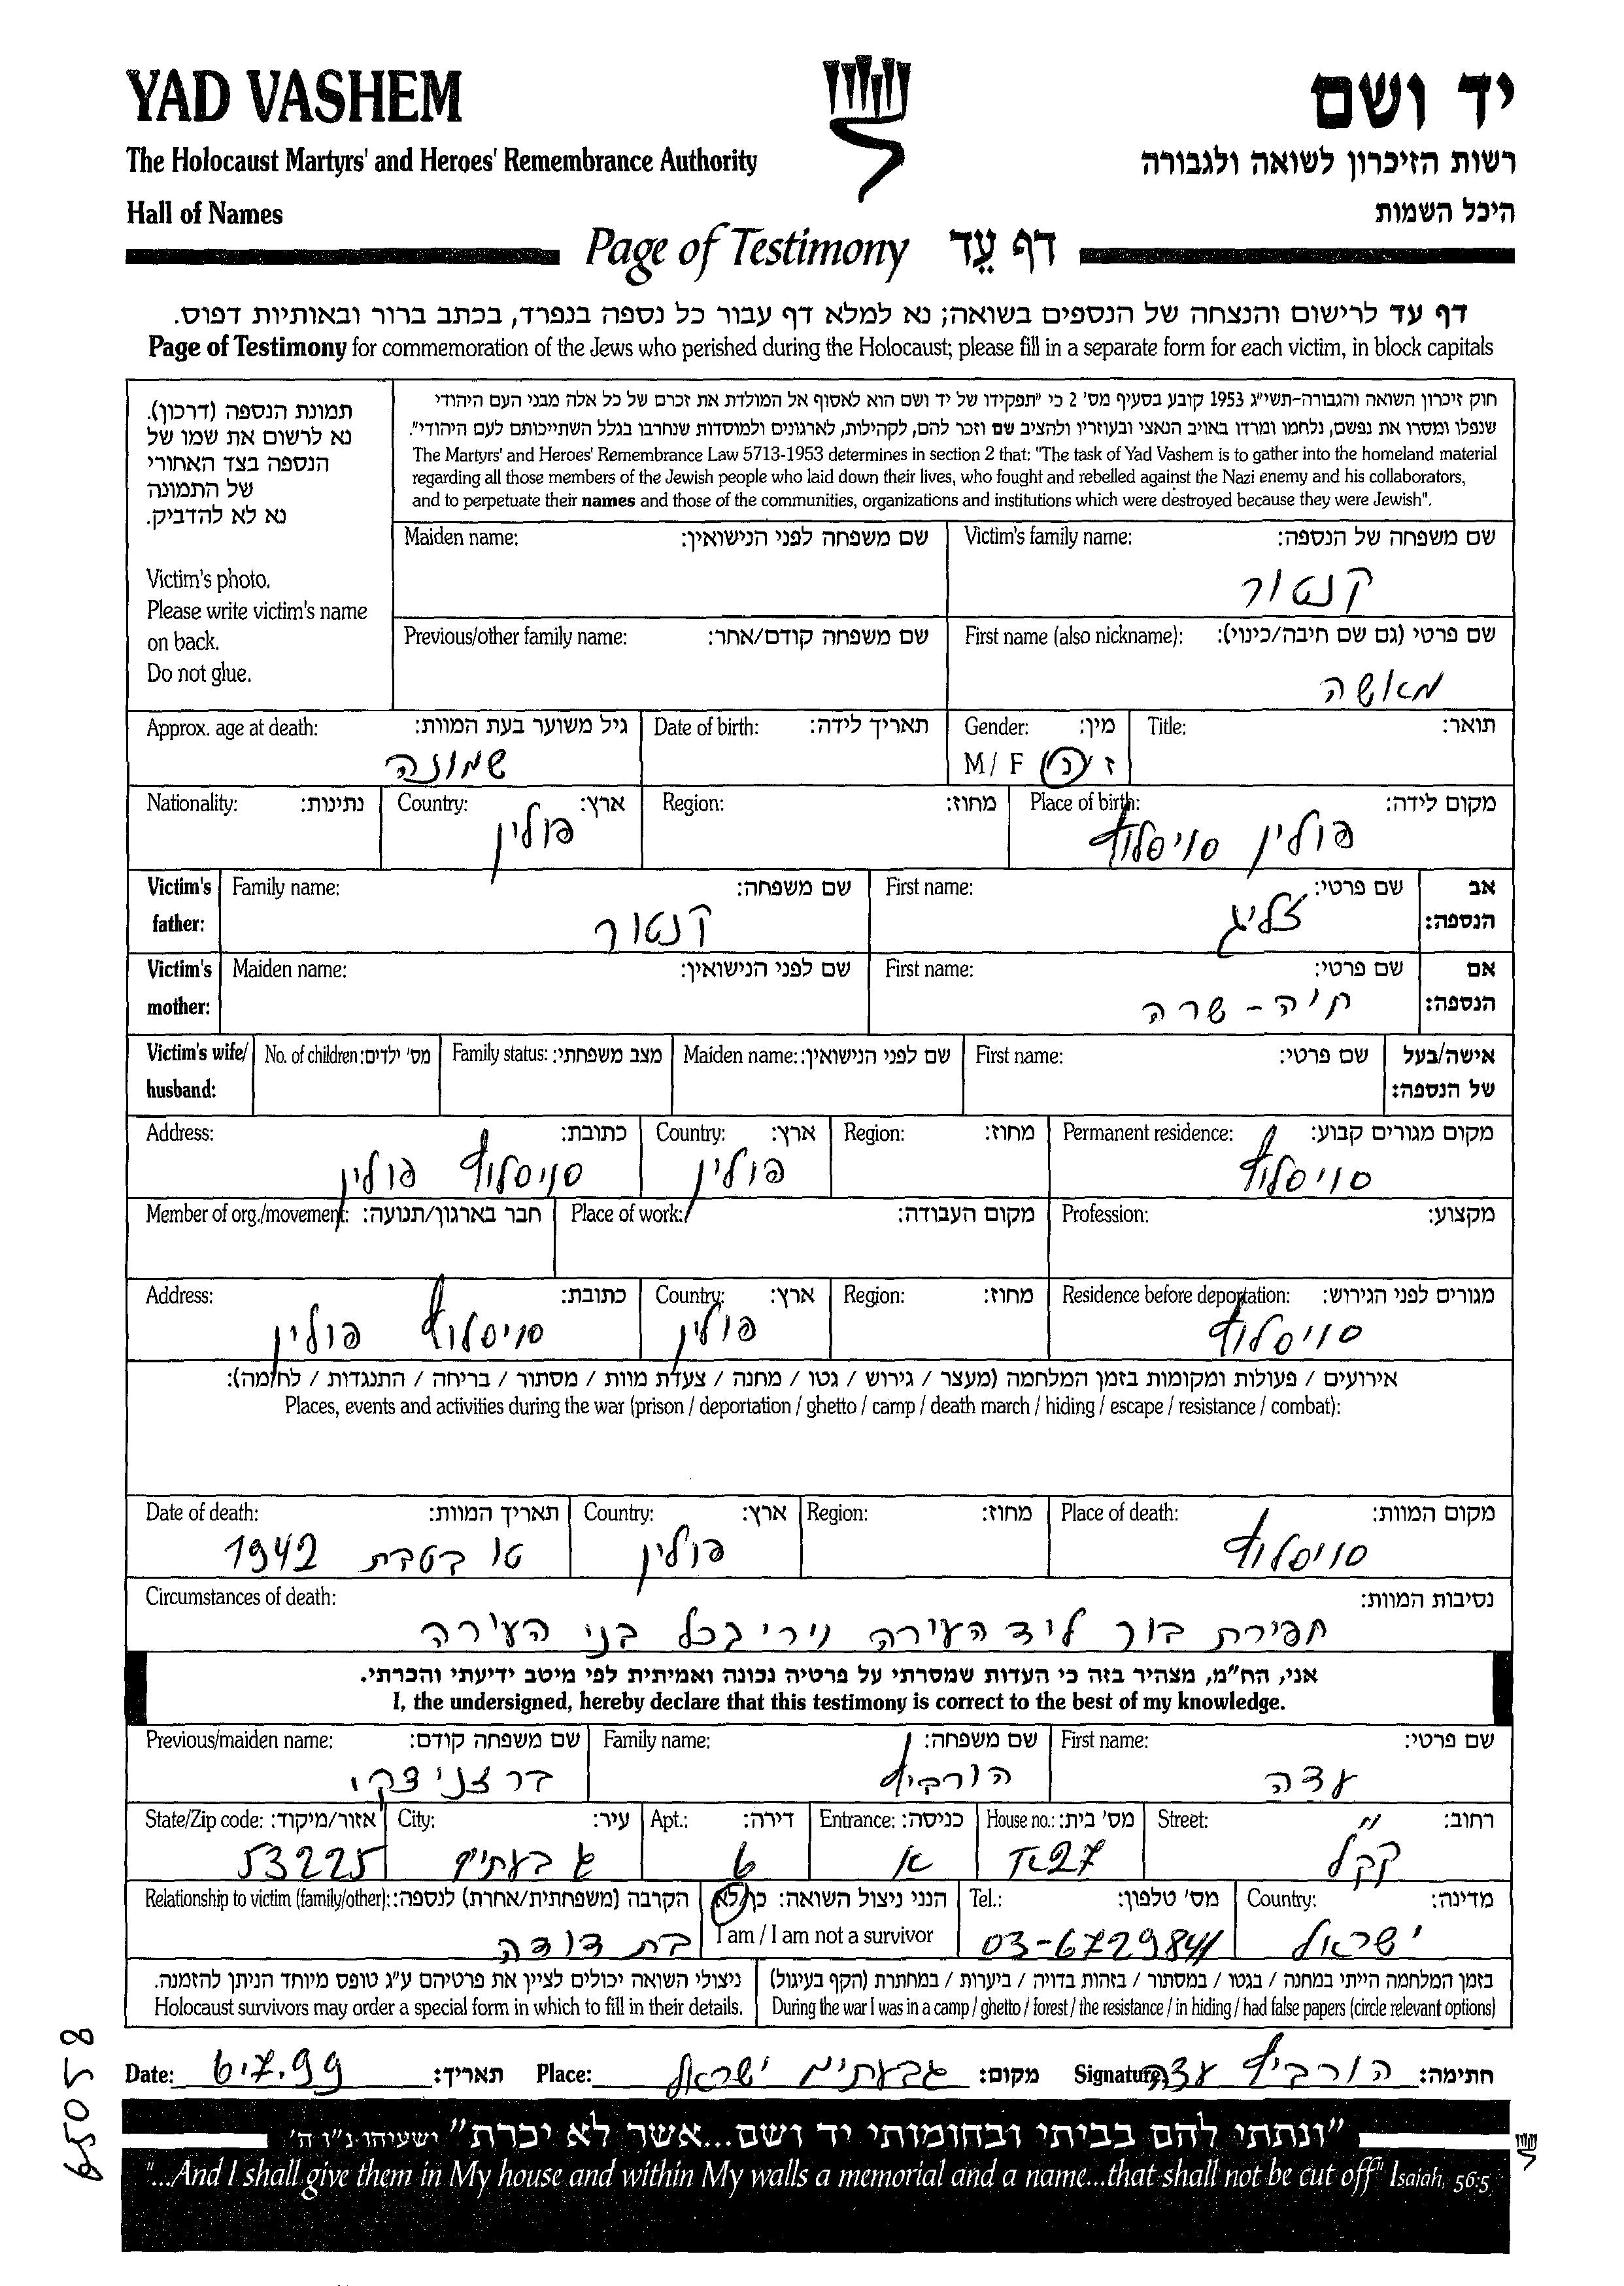 YAD VASHEM
יד ושם
The Holocaust Martyrs' and Heroes' Remembrance Authority
רשות הזיכרון לשואה ולגבורה
Hall of Names
היכל השמות
Page of Testimony דף עֵד
דף עד לרישום והנצחה של הנספים בשואה; נא למלא דף עבור כל נספה בנפרד, בכתב ברור ובאותיות דפוס.
Page of Testimony for commemoration of the Jews who perished during the Holocaust; please fill in a separate form for each victim, in block capitals
תמונת הנספה (דרכון).
נא לרשום את שמו של
הנספה בצד האחורי
של התמונה
נא לא להדביק.
Victim's photo.
Please write victim's name
on back.
Do not glue.
חוק זיכרון השואה והגבורה-תשי"ג 1953 קובע בסעיף מס' 2 כי "תפקידו של יד ושם הוא לאסוף אל המולדת את זכרם של כל אלה מבני העם היהודי
שנפלו ומסרו את נפשם, נלחמו ומרדו באויב הנאצי ובעוזריו ולהציב שם וזכר להם, לקהילות, לארגונים ולמוסדות שנחרבו בגלל השתייכותם לעם היהודי".
The Martyrs' and Heroes' Remembrance Law 5713-1953 determines in section 2 that: "The task of Yad Vashem is to gather into the homeland material
regarding all those members of the Jewish people who laid down their lives, who fought and rebelled against the Nazi enemy and his collaborators,
and to perpetuate their names and those of the communities, organizations and institutions which were destroyed because they were Jewish".
Victim's family name: שם משפחה של הנספה:
קנטור
Maiden name: שם משפחה לפני הנישואין:
First name (also nickname): שם פרטי (גם שם חיבה/כינוי):
מאשה
Previous/other family name: שם משפחה קודם/אחר:
Title: תואר:
Gender: מין:
M / F ז / נ
Date of birth: תאריך לידה:
Approx. age at death: גיל משוער בעת המוות:
שמונה
Place of birth: מקום לידה:
פולין סויסלוץ
Region: מחוז:
Country: ארץ:
פולין
Nationality: נתינות:
Victim's father: אב הנספה:
First name: שם פרטי:
זליג
Family name: שם משפחה:
קנטור
Victim's mother: אם הנספה:
First name: שם פרטי:
חיה - שרה
Maiden name: שם לפני הנישואין:
Victim's wife/ husband: אישה/בעל של הנספה:
First name: שם פרטי:
Maiden name: שם לפני הנישואין:
Family status: מצב משפחתי:
No. of children: מס' ילדים:
Permanent residence: מקום מגורים קבוע:
סויסלוץ
Region: מחוז:
Country: ארץ:
פולין
Address: כתובת:
סויסלוץ פולין
Profession: מקצוע:
Place of work: מקום העבודה:
Member of org./movement: חבר בארגון/תנועה:
Residence before deportation: מגורים לפני הגירוש:
סויסלוץ
Region: מחוז:
Country: ארץ:
פולין
Address: כתובת:
סויסלוץ פולין
אירועים / פעולות ומקומות בזמן המלחמה (מעצר / גירוש / גטו / מחנה / צעדת מוות / מסתור / בריחה / התנגדות / לחימה):
Places, events and activities during the war (prison / deportation / ghetto / camp / death march / hiding / escape / resistance / combat):
Place of death: מקום המוות:
סויסלוץ
Region: מחוז:
Country: ארץ:
פולין
Date of death: תאריך המוות:
טו בטבת 1942
Circumstances of death: נסיבות המוות:
חפירת בור ליד העירה וירי בכל בני העירה
אני, הח"מ, מצהיר בזה כי העדות שמסרתי על פרטיה נכונה ואמיתית לפי מיטב ידיעתי והכרתי.
I, the undersigned, hereby declare that this testimony is correct to the best of my knowledge.
First name: שם פרטי:
עדה
Family name: שם משפחה:
הורביץ
Previous/maiden name: שם משפחה קודם:
ברזניצקי
Street: רחוב:
קק"ל
House no.: מס' בית:
27
Entrance: כניסה:
א
Apt.: דירה:
6
City: עיר:
גבעתים
State/Zip code: אזור/מיקוד:
53225
Country: מדינה:
ישראל
Tel.: מס' טלפון:
03-6729841
הנני ניצול השואה: כן/לא
I am / I am not a survivor
Relationship to victim (family/other): הקרבה (משפחתית/אחרת) לנספה:
בת דודה
בזמן המלחמה הייתי במחנה / בגטו / במסתור / בזהות בדויה / ביערות / במחתרת (הקף בעיגול)
During the war I was in a camp / ghetto / forest / the resistance / in hiding / had false papers (circle relevant options)
ניצולי השואה יכולים לציין את פרטיהם ע"ג טופס מיוחד הניתן להזמנה.
Holocaust survivors may order a special form in which to fill in their details.
Date: 6.7.99 תאריך:
Place: גבעתים ישראל מקום:
Signature: הורביץ עדה חתימה:
"ונתתי להם בביתי ובחומותי יד ושם...אשר לא יכרת" ישעיהו נ"ו ה'
"...And I shall give them in My house and within My walls a memorial and a name...that shall not be cut off" Isaiah, 56:5
65058